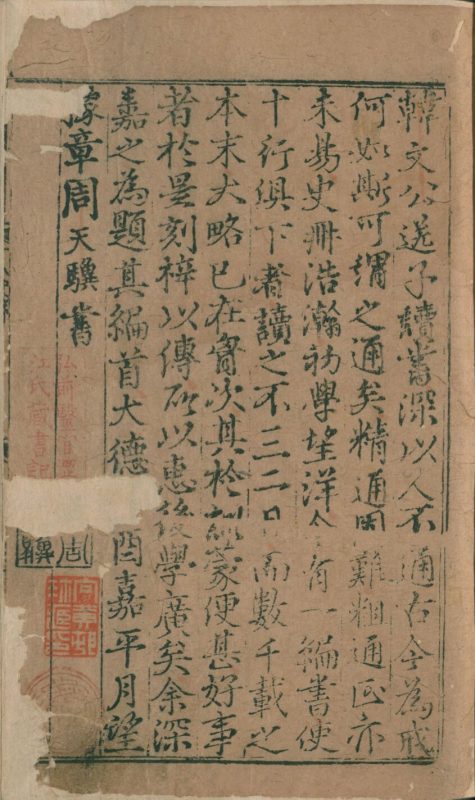 韓文公送子讀書深以人不通古今為戒
何如斯可謂之通矣精通固難粗通正亦
未易史冊浩瀚初學望洋今有一編書使
十行俱下者讀之不三二日而數千載之
本末大略已在胷次其於訓蒙便甚好事
者於是刻梓以傳所以惠後學廣矣余深
嘉之為題其編首大德酉嘉平月望
豫章周天驥書
弘前醫官澁
江氏藏書記
周
驥
向黃邨
珍藏印